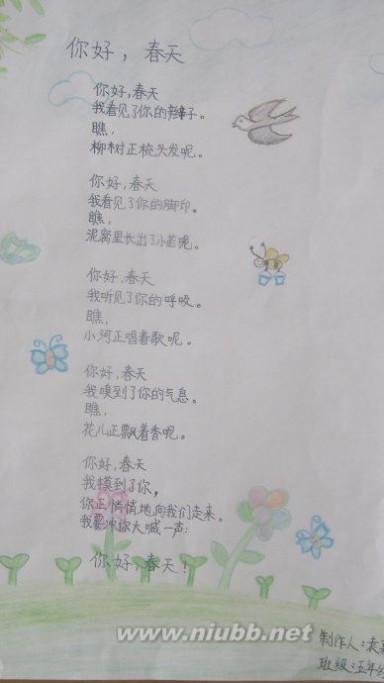 你好，春天
你好，春天
我看见了你的辫子。
瞧，
柳树正梳头发呢。
你好，春天
我看见了你的脚印。
瞧，
泥窝里长出了小苗呢。
你好，春天
我听见了你的呼吸。
瞧，
小河正唱着歌呢。
你好，春天
我嗅到了你的气息。
瞧，
花儿正飘着香呢。
你好，春天
我摸到了你，
你正悄悄地向我们走来。
我要冲你大喊一声：
你好，春天！
www.niubb.net
制作人：袁
班级：五年级